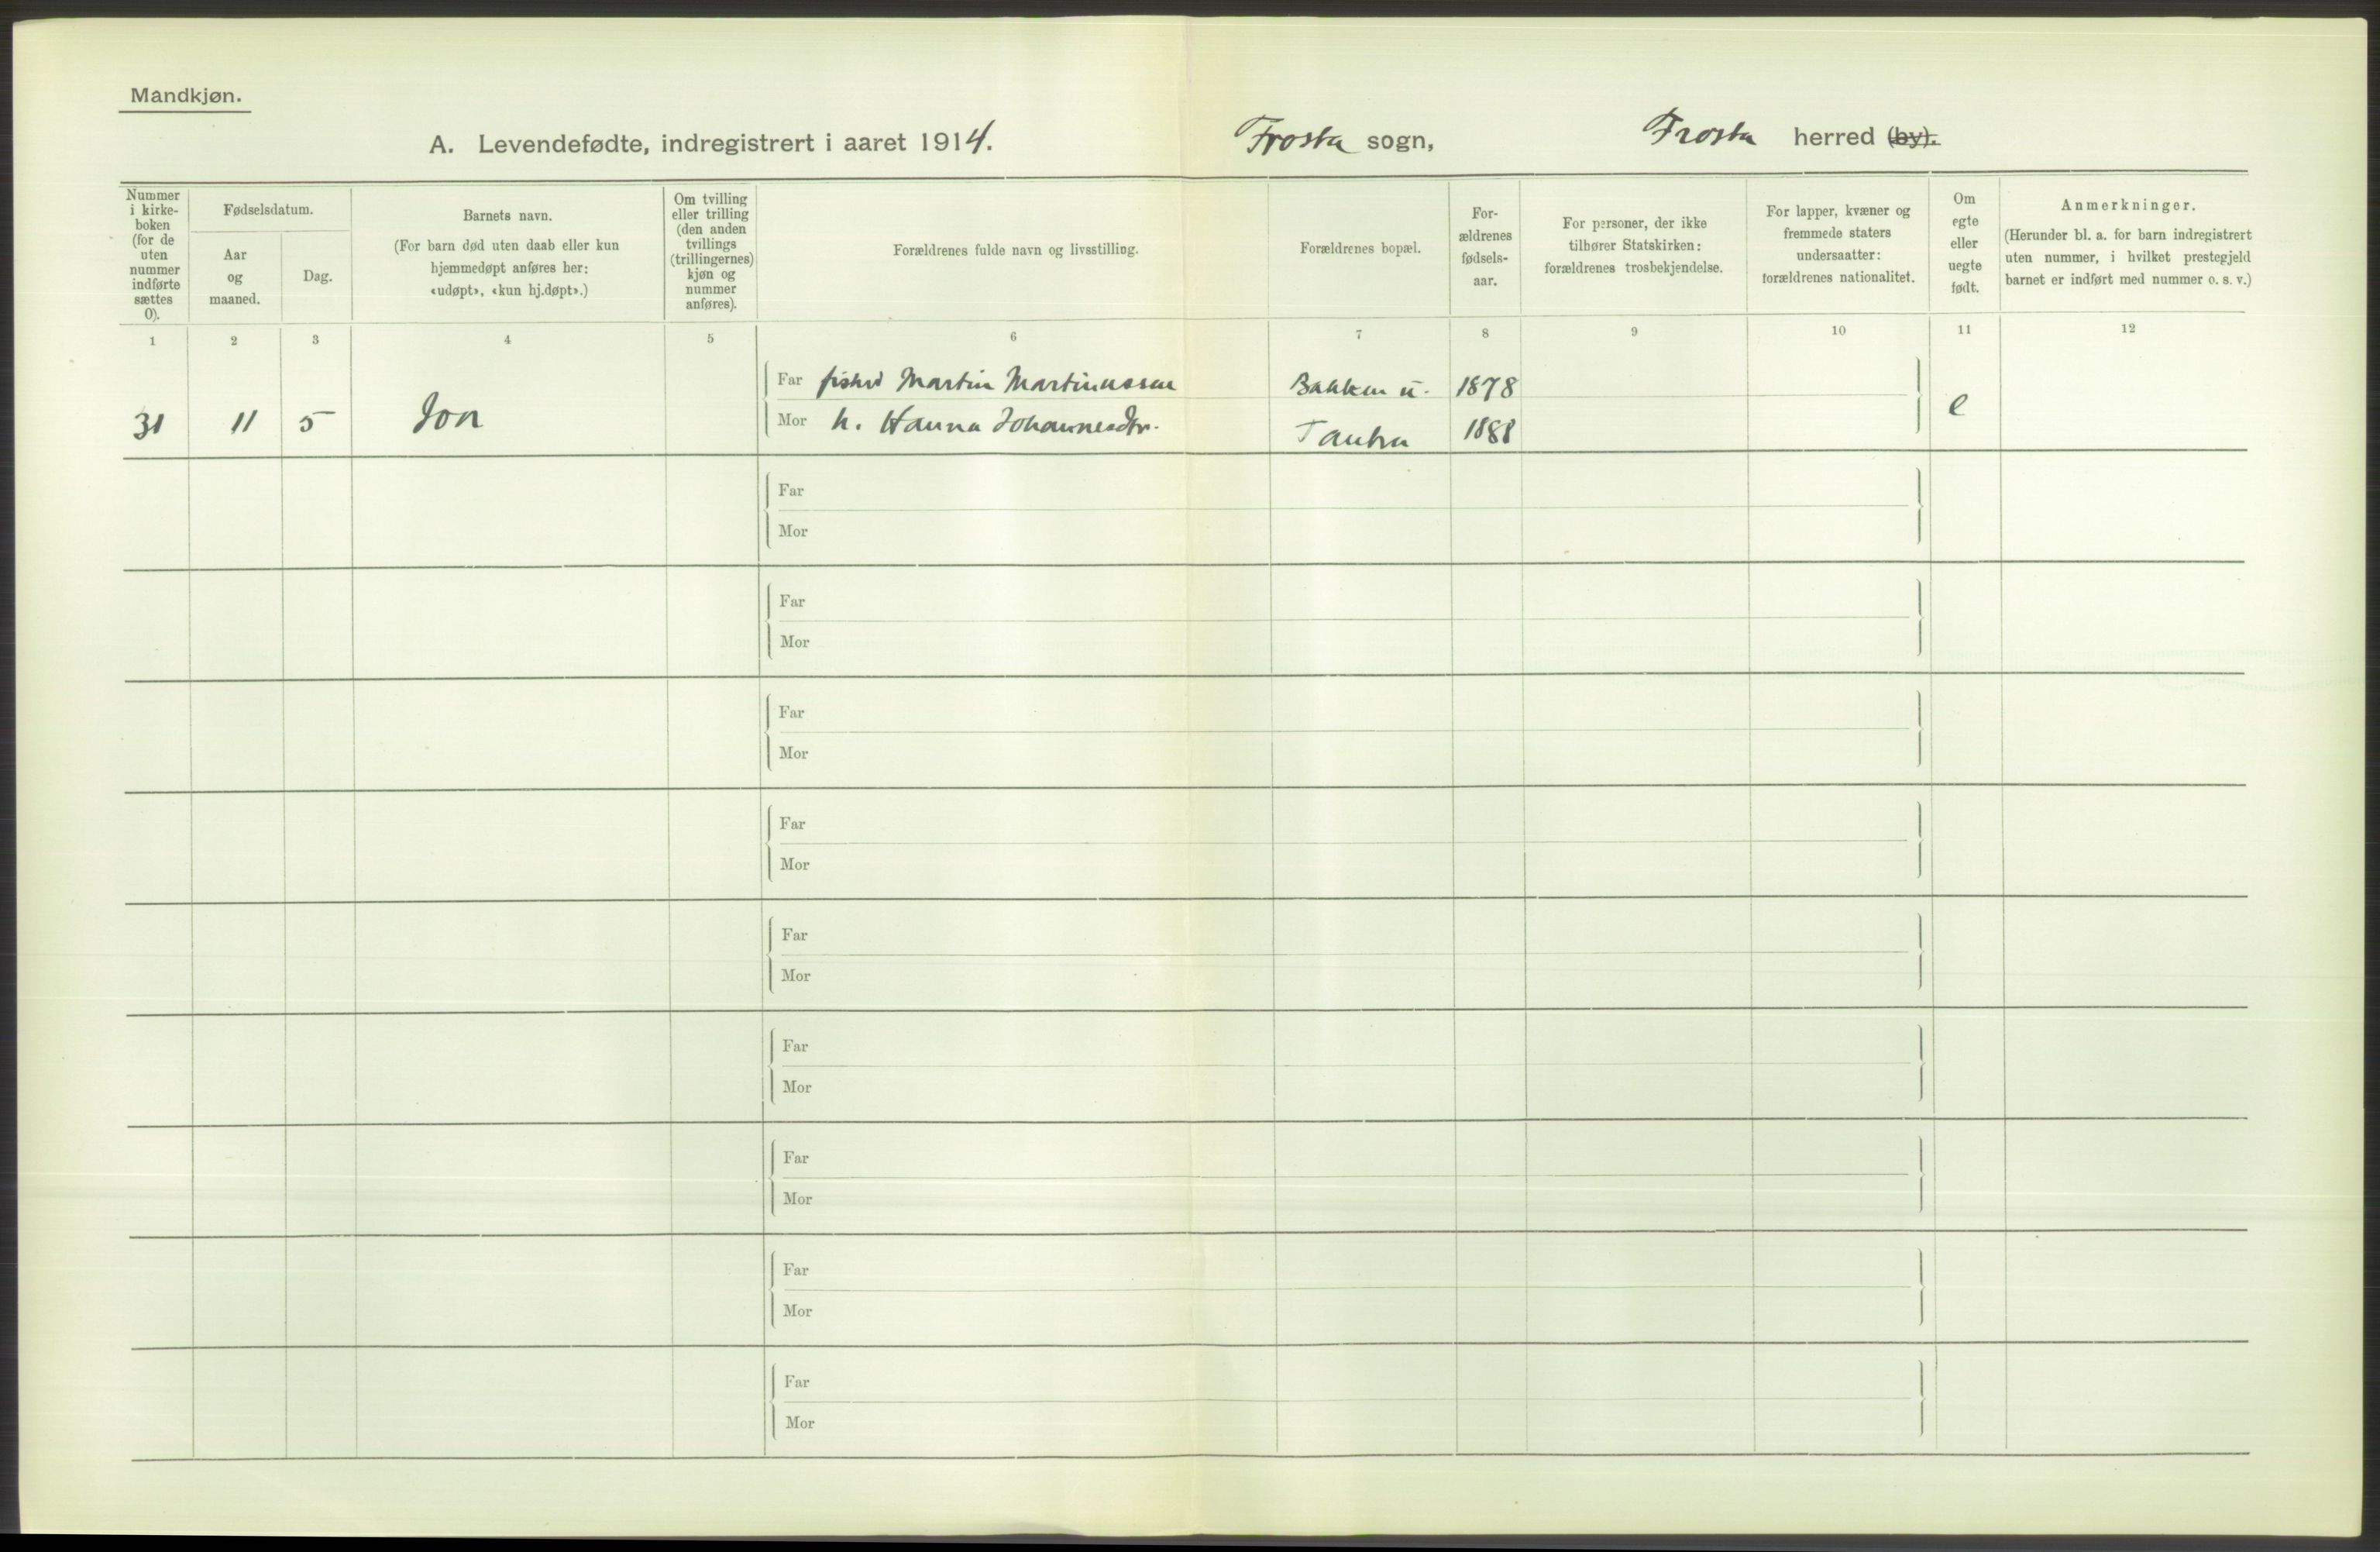 Mandkjøn.
A. Levendefødte, indregistrert i aaret 1914. Frosta sogn, Frosta herred (by).
Nummer
i kirke-
boken
(for de
uten
nummer
indførte
sættes
0).
Fødselsdatum.
Aar
og
maaned.
Dag.
Barnets navn.
(For barn død uten daab eller kun
hjemmedøpt anføres her:
«udøpt», «kun hj.døpt».)
Om tvilling
eller trilling
(den anden
tvillings
(trillingernes)
kjøn og
nummer
anføres).
Forældrenes fulde navn og livsstilling.
Forældrenes bopæl.
For-
ældrenes
fødsels-
aar.
For personer, der ikke
tilhører Statskirken:
forældrenes trosbekjendelse.
For lapper, kvæner og
fremmede staters
undersaatter:
forældrenes nationalitet.
Om
egte
eller
uegte
født.
Anmerkninger.
(Herunder bl. a. for barn indregistrert
uten nummer, i hvilket prestegjeld
barnet er indført med nummer o. s. v.)
1 2 3 4 5 6 7 8 9 10 11 12
Far fisker Martin Martinussen Bakken u. 1878
31 11 5 Jon Mor h. Hanna Johannesdtr. Tautra 1888 e
Far
Mor
Far
Mor
Far
Mor
Far
Mor
Far
Mor
Far
Mor
Far
Mor
Far
Mor
Far
Mor